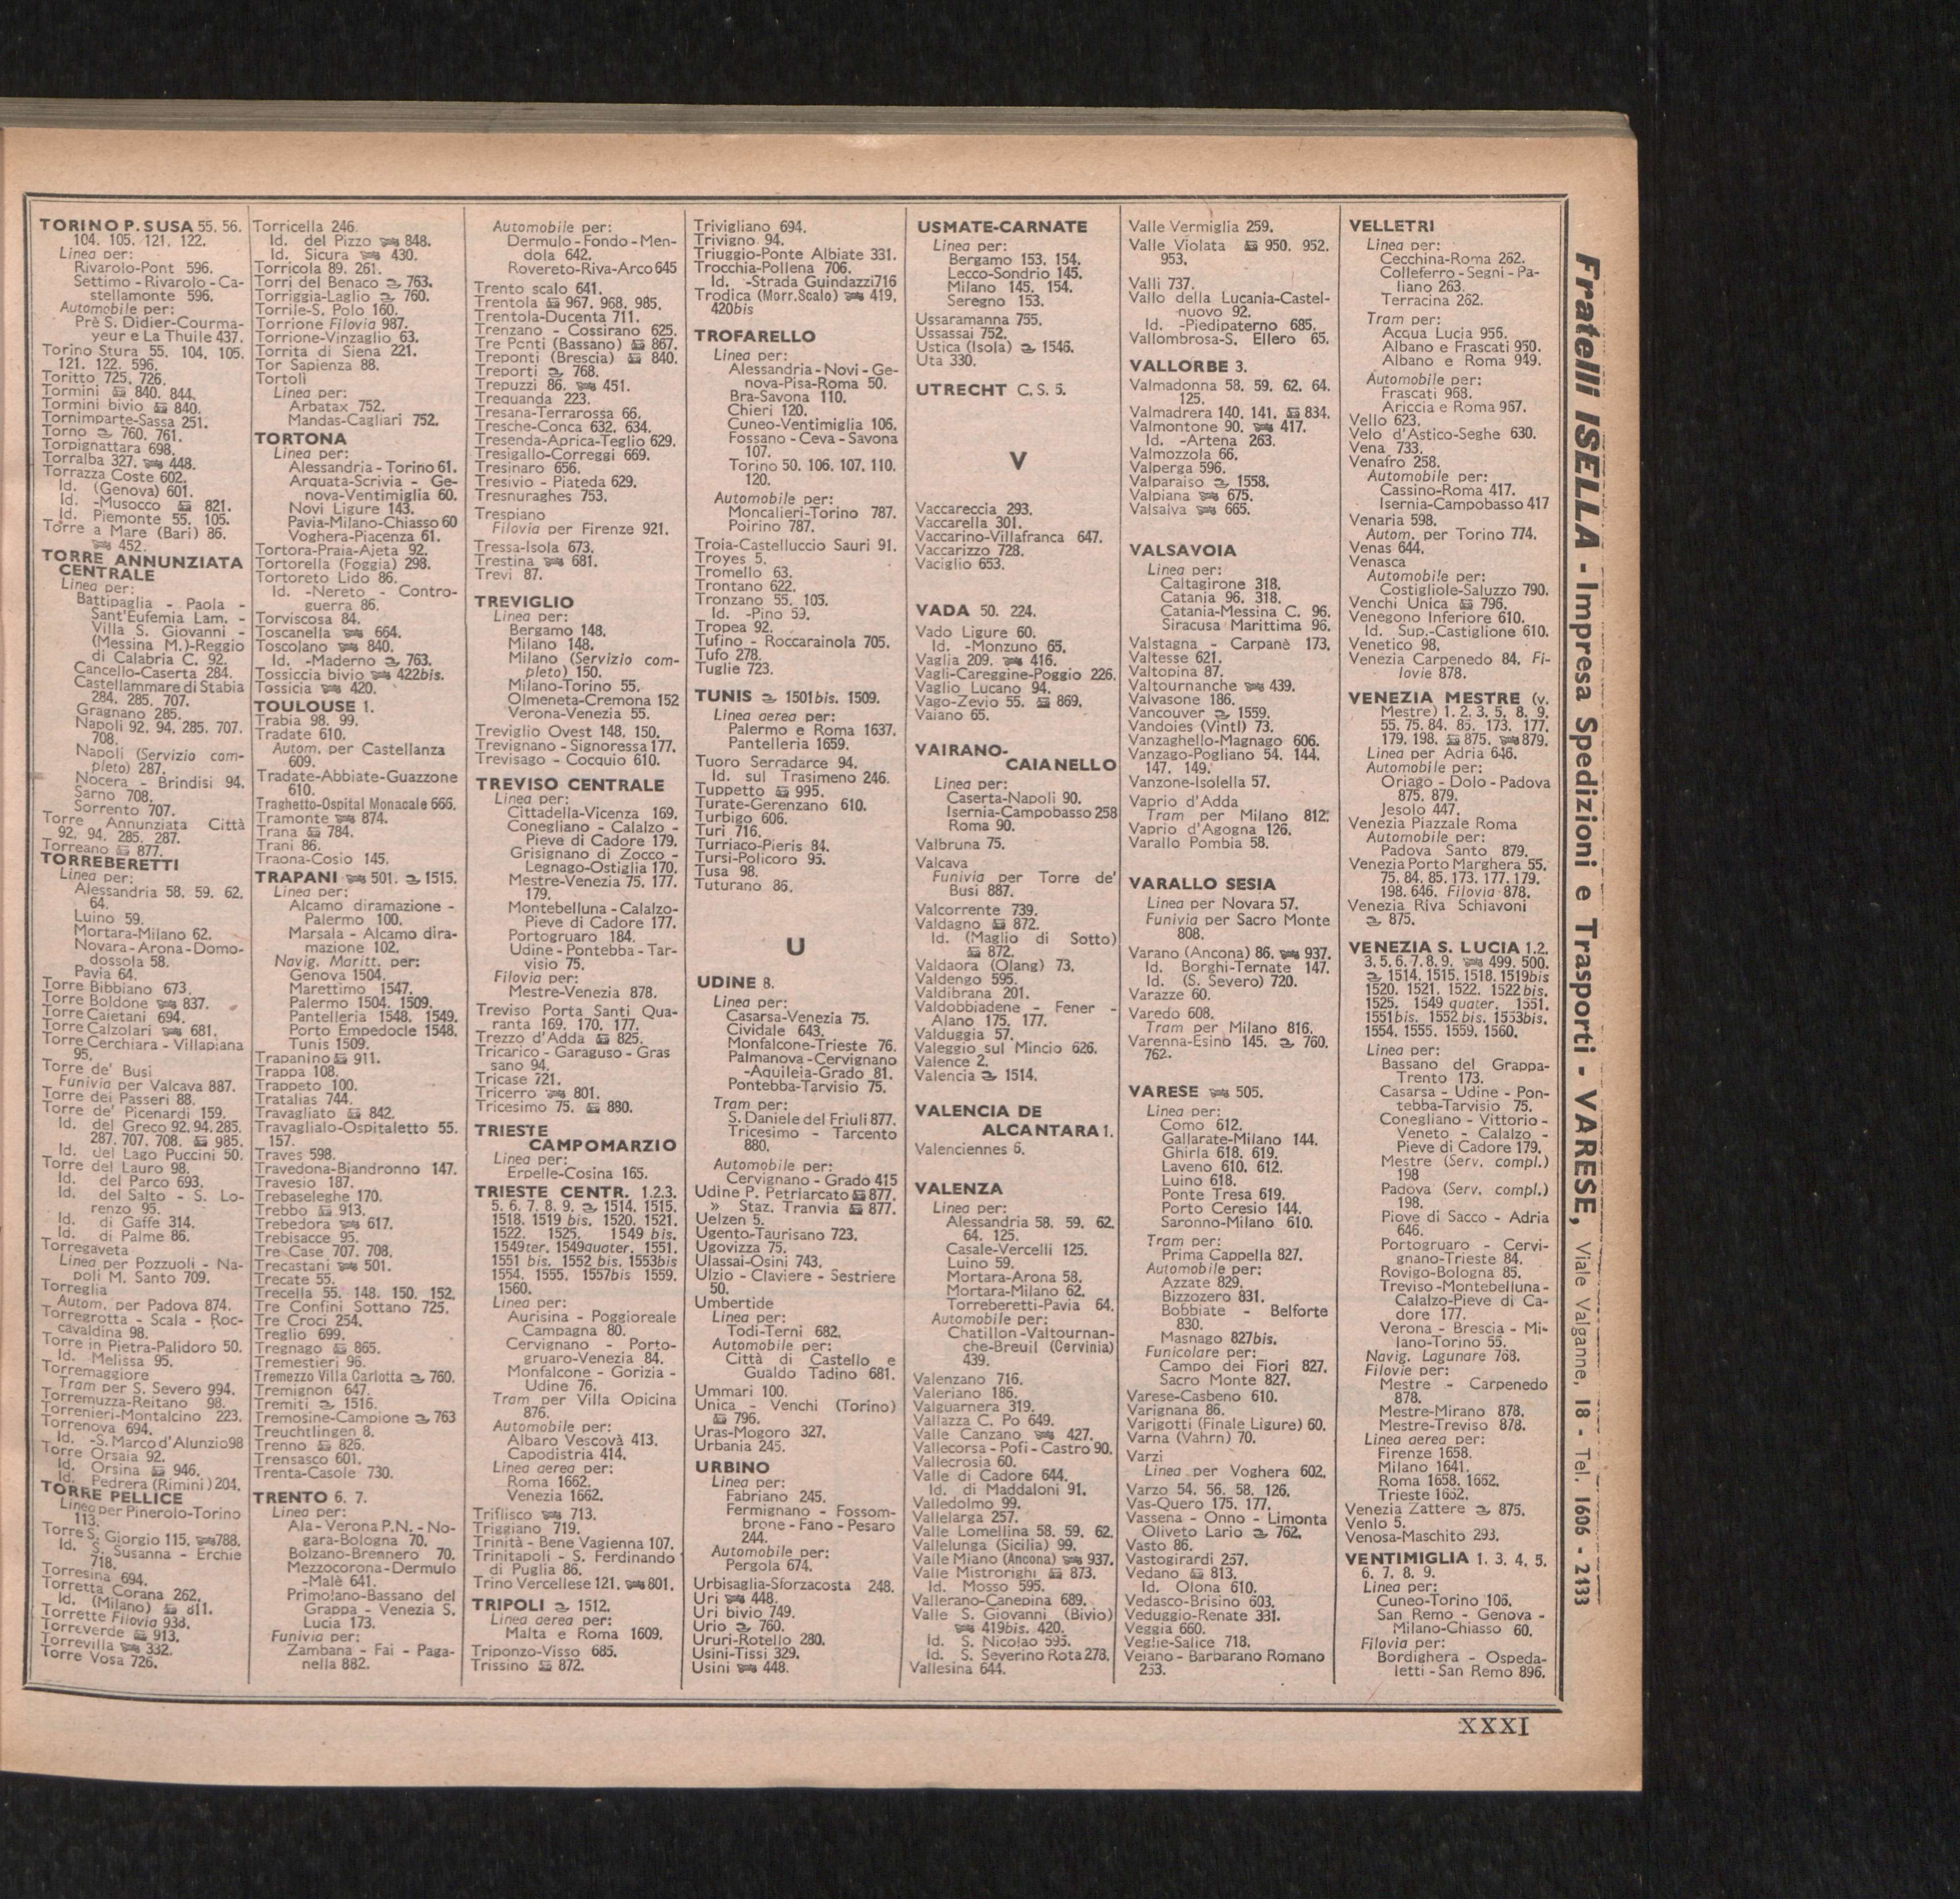 TORINO P. SUSA 55. 56.
104. 105. 121. 122.
Linea per:
Rivarolo-Pont 596.
Settimo - Rivarolo - Ca-
stellamonte 596.
Automobile per:
Prè S. Didier-Courma-
yeur e La Thuile 437.
Torino Stura 55. 104. 105.
121. 122. 596.
Toritto 725. 726.
Tormini 840. 844.
Tormini bivio 840.
Tornimparte-Sassa 251.
Torno 760. 761.
Torpignattara 698.
Torralba 327. 448.
Torrazza Coste 602.
Id. (Genova) 601.
Id. -Musocco 821.
Id. Piemonte 55. 105.
Torre a Mare (Bari) 86.
452.
TORRE ANNUNZIATA
CENTRALE
Linea per:
Battipaglia - Paola -
Sant'Eufemia Lam. -
Villa S. Giovanni -
(Messina M.)-Reggio
di Calabria C. 92.
Cancello-Caserta 284.
Castellammare di Stabia
284. 285. 707.
Gragnano 285.
Napoli 92. 94. 285. 707.
708.
Napoli (Servizio com-
pleto) 287.
Nocera - Brindisi 94.
Sarno 708.
Sorrento 707.
Torre Annunziata Città
92. 94. 285. 287.
Torreano 877.
TORREBERETTI
Linea per:
Alessandria 58. 59. 62.
64.
Luino 59.
Mortara-Milano 62.
Novara - Arona - Domo-
dossola 58.
Pavia 64.
Torre Bibbiano 673.
Torre Boldone 837.
Torre Caietani 694.
Torre Calzolari 681.
Torre Cerchiara - Villapiana
95.
Torre de' Busi
Funivia per Valcava 887.
Torre dei Passeri 88.
Torre de' Picenardi 159.
Id. del Greco 92. 94. 285.
287. 707. 708. 985.
Id. del Lago Puccini 50.
Torre del Lauro 98.
Id. del Parco 693.
Id. del Salto - S. Lo-
renzo 95.
Id. di Gaffe 314.
Id. di Palme 86.
Torregaveta
Linea per Pozzuoli - Na-
poli M. Santo 709.
Torreglia
Autom. per Padova 874.
Torregrotta - Scala - Roc-
cavaldina 98.
Torre in Pietra-Palidoro 50.
Id. Melissa 95.
Torremaggiore
Tram per S. Severo 994.
Torremuzza-Reitano 98.
Torrenieri-Montalcino 223.
Torrenova 694.
Id. -S. Marco d'Alunzio 98
Torre Orsaia 92.
Id. Orsina 946.
Id. Pedrera (Rimini) 204.
TORRE PELLICE
Linea per Pinerolo-Torino
113.
Torre S. Giorgio 115. 788.
Id. S. Susanna - Erchie
718.
Torresina 694.
Torretta Corana 262.
Id. (Milano) 811.
Torrette Filovia 938.
Torreverde 913.
Torrevilla 332.
Torre Vosa 726.
Torricella 246.
Id. del Pizzo 848.
Id. Sicura 430.
Torricola 89. 261.
Torri del Benaco 763.
Torriggia-Laglio 760.
Torrile-S. Polo 160.
Torrione Filovia 987.
Torrione-Vinzaglio 63.
Torrita di Siena 221.
Tor Sapienza 88.
Tortolì
Linea per:
Arbatax 752.
Mandas-Cagliari 752.
TORTONA
Linea per:
Alessandria - Torino 61.
Arquata-Scrivia - Ge-
nova-Ventimiglia 60.
Novi Ligure 143.
Pavia-Milano-Chiasso 60
Voghera-Piacenza 61.
Tortora-Praia-Ajeta 92.
Tortorella (Foggia) 298.
Tortoreto Lido 86.
Id. -Nereto - Contro-
guerra 86.
Torviscosa 84.
Toscanella 664.
Toscolano 840.
Id. -Maderno 763.
Tossiccia bivio 422bis.
Tossicia 420.
TOULOUSE 1.
Trabia 98. 99.
Tradate 610.
Autom. per Castellanza
609.
Tradate-Abbiate-Guazzone
610.
Traghetto-Ospital Monacale 666.
Tramonte 874.
Trana 784.
Trani 86.
Traona-Cosio 145.
TRAPANI 501. 1515.
Linea per:
Alcamo diramazione -
Palermo 100.
Marsala - Alcamo dira-
mazione 102.
Navig. Maritt. per:
Genova 1504.
Marettimo 1547.
Palermo 1504. 1509.
Pantelleria 1548. 1549.
Porto Empedocle 1548.
Tunis 1509.
Trapanino 911.
Trappa 108.
Trappeto 100.
Tratalias 744.
Travagliato 842.
Travaglialo-Ospitaletto 55.
157.
Traves 598.
Travedona-Biandronno 147.
Travesio 187.
Trebaseleghe 170.
Trebbo 913.
Trebedora 617.
Trebisacce 95.
Tre Case 707. 708.
Trecastani 501.
Trecate 55.
Trecella 55. 148. 150. 152.
Tre Confini Sottano 725.
Tre Croci 254.
Treglio 699.
Tregnago 865.
Tremestieri 96.
Tremezzo Villa Carlotta 760.
Tremignon 647.
Tremiti 1516.
Tremosine-Campione 763
Treuchtlingen 8.
Trenno 826.
Trensasco 601.
Trenta-Casole 730.
TRENTO 6. 7.
Linea per:
Ala - Verona P.N. - No-
gara-Bologna 70.
Bolzano-Brennero 70.
Mezzocorona-Dermulo
-Malè 641.
Primolano-Bassano del
Grappa - Venezia S.
Lucia 173.
Funivia per:
Zambana - Fai - Paga-
nella 882.
Automobile per:
Dermulo - Fondo - Men-
dola 642.
Rovereto-Riva-Arco 645
Trento scalo 641.
Trentola 967. 968. 985.
Trentola-Ducenta 711.
Trenzano - Cossirano 625.
Tre Ponti (Bassano) 867.
Treponti (Brescia) 840.
Treporti 768.
Trepuzzi 86. 451.
Trequanda 223.
Tresana-Terrarossa 66.
Tresche-Conca 632. 634.
Tresenda-Aprica-Teglio 629.
Tresigallo-Correggi 669.
Tresinaro 656.
Tresivio - Piateda 629.
Tresnuraghes 753.
Trespiano
Filovia per Firenze 921.
Tressa-Isola 673.
Trestina 681.
Trevi 87.
TREVIGLIO
Linea per:
Bergamo 148.
Milano 148.
Milano (Servizio com-
pleto) 150.
Milano-Torino 55.
Olmeneta-Cremona 152
Verona-Venezia 55.
Treviglio Ovest 148. 150.
Trevignano - Signoressa 177.
Trevisago - Cocquio 610.
TREVISO CENTRALE
Linea per:
Cittadella-Vicenza 169.
Conegliano - Calalzo -
Pieve di Cadore 179.
Grisignano di Zocco -
Legnago-Ostiglia 170.
Mestre-Venezia 75. 177.
179.
Montebelluna - Calalzo-
Pieve di Cadore 177.
Portogruaro 184.
Udine - Pontebba - Tar-
visio 75.
Filovia per:
Mestre-Venezia 878.
Treviso Porta Santi Qua-
ranta 169. 170. 177.
Trezzo d'Adda 825.
Tricarico - Garaguso - Gras
sano 94.
Tricase 721.
Tricerro 801.
Tricesimo 75. 880.
TRIESTE
CAMPOMARZIO
Linea per:
Erpelle-Cosina 165.
TRIESTE CENTR. 1.2.3.
5. 6. 7. 8. 9. 1514. 1515.
1518. 1519 bis. 1520. 1521.
1522. 1525. 1549 bis.
1549ter. 1549quater. 1551.
1551 bis. 1552 bis. 1553bis
1554. 1555. 1557bis 1559.
1560.
Linea per:
Aurisina - Poggioreale
Campagna 80.
Cervignano - Porto-
gruaro-Venezia 84.
Monfalcone - Gorizia -
Udine 76.
Tram per Villa Opicina
876.
Automobile per:
Albaro Vescovà 413.
Capodistria 414.
Linea aerea per:
Roma 1662.
Venezia 1662.
Triflisco 713.
Triggiano 719.
Trinità - Bene Vagienna 107.
Trinitapoli - S. Ferdinando
di Puglia 86.
Trino Vercellese 121. 801.
TRIPOLI 1512.
Linea aerea per:
Malta e Roma 1609.
Triponzo-Visso 685.
Trissino 872.
Trivigliano 694.
Trivigno 94.
Triuggio-Ponte Albiate 331.
Trocchia-Pollena 706.
Id. -Strada Guindazzi 716
Trodica (Morr. Scalo) 419.
420bis
TROFARELLO
Linea per:
Alessandria - Novi - Ge-
nova-Pisa-Roma 50.
Bra-Savona 110.
Chieri 120.
Cuneo-Ventimiglia 106.
Fossano - Ceva - Savona
107.
Torino 50. 106. 107. 110.
120.
Automobile per:
Moncalieri-Torino 787.
Poirino 787.
Troia-Castelluccio Sauri 91.
Troyes 5.
Tromello 63.
Trontano 622.
Tronzano 55. 105.
Id. -Pino 59.
Tropea 92.
Tufino - Roccarainola 705.
Tufo 278.
Tuglie 723.
TUNIS 1501bis. 1509.
Linea aerea per:
Palermo e Roma 1637.
Pantelleria 1659.
Tuoro Serradarce 94.
Id. sul Trasimeno 246.
Tuppetto 995.
Turate-Gerenzano 610.
Turbigo 606.
Turi 716.
Turriaco-Pieris 84.
Tursi-Policoro 95.
Tusa 98.
Tuturano 86.
U
UDINE 8.
Linea per:
Casarsa-Venezia 75.
Cividale 643.
Monfalcone-Trieste 76.
Palmanova-Cervignano
-Aquileia-Grado 81.
Pontebba-Tarvisio 75.
Tram per:
S. Daniele del Friuli 877.
Tricesimo - Tarcento
880.
Automobile per:
Cervignano - Grado 415
Udine P. Petriarcato 877.
» Staz. Tranvia 877.
Uelzen 5.
Ugento-Taurisano 723.
Ugovizza 75.
Ulassai-Osini 743.
Ulzio - Claviere - Sestriere
50.
Umbertide
Linea per:
Todi-Terni 682.
Automobile per:
Città di Castello e
Gualdo Tadino 681.
Ummari 100.
Unica - Venchi (Torino)
796.
Uras-Mogoro 327.
Urbania 245.
URBINO
Linea per:
Fabriano 245.
Fermignano - Fossom-
brone - Fano - Pesaro
244.
Automobile per:
Pergola 674.
Urbisaglia-Sforzacosta 248.
Uri 448.
Uri bivio 749.
Urio 760.
Ururi-Rotello 280.
Usini-Tissi 329.
Usini 448.
USMATE-CARNATE
Linea per:
Bergamo 153. 154.
Lecco-Sondrio 145.
Milano 145. 154.
Seregno 153.
Ussaramanna 755.
Ussassai 752.
Ustica (Isola) 1546.
Uta 330.
UTRECHT C. S. 5.
V
Vaccareccia 293.
Vaccarella 301.
Vaccarino-Villafranca 647.
Vaccarizzo 728.
Vaciglio 653.
VADA 50. 224.
Vado Ligure 60.
Id. -Monzuno 65.
Vaglia 209. 416.
Vagli-Careggine-Poggio 226.
Vaglio Lucano 94.
Vago-Zevio 55. 869.
Vaiano 65.
VAIRANO-
CAIANELLO
Linea per:
Caserta-Napoli 90.
Isernia-Campobasso 258
Roma 90.
Valbruna 75.
Valcava
Funivia per Torre de'
Busi 887.
Valcorrente 739.
Valdagno 872.
Id. (Maglio di Sotto)
872.
Valdaora (Olang) 73.
Valdengo 595.
Valdibrana 201.
Valdobbiadene - Fener -
Alano 175. 177.
Valduggia 57.
Valeggio sul Mincio 626.
Valence 2.
Valencia 1514.
VALENCIA DE
ALCANTARA 1.
Valenciennes 6.
VALENZA
Linea per:
Alessandria 58. 59. 62.
64. 125.
Casale-Vercelli 125.
Luino 59.
Mortara-Arona 58.
Mortara-Milano 62.
Torreberetti-Pavia 64.
Automobile per:
Chatillon -Valtournan-
che-Breuil (Cervinia)
439.
Valenzano 716.
Valeriano 186.
Valguarnera 319.
Vallazza C. Po 649.
Valle Canzano 427.
Vallecorsa - Pofi - Castro 90.
Vallecrosia 60.
Valle di Cadore 644.
Id. di Maddaloni 91.
Valledolmo 99.
Vallelarga 257.
Valle Lomellina 58. 59. 62.
Vallelunga (Sicilia) 99.
Valle Miano (Ancona) 937.
Valle Mistrorighi 873.
Id. Mosso 595.
Vallerano-Canepina 689.
Valle S. Giovanni (Bivio)
419bis. 420.
Id. S. Nicolao 595.
Id. S. Severino Rota 278.
Vallesina 644.
Valle Vermiglia 259.
Valle Violata 950. 952.
953.
Valli 737.
Vallo della Lucania-Castel-
nuovo 92.
Id. -Piedipaterno 685.
Vallombrosa-S. Ellero 65.
VALLORBE 3.
Valmadonna 58. 59. 62. 64.
125.
Valmadrera 140. 141. 834.
Valmontone 90. 417.
Id. -Artena 263.
Valmozzola 66.
Valperga 596.
Valparaiso 1558.
Valpiana 675.
Valsaiva 665.
VALSAVOIA
Linea per:
Caltagirone 318.
Catania 96. 318.
Catania-Messina C. 96.
Siracusa Marittima 96.
Valstagna - Carpanè 173.
Valtesse 621.
Valtopina 87.
Valtournanche 439.
Valvasone 186.
Vancouver 1559.
Vandoies (Vintl) 73.
Vanzaghello-Magnago 606.
Vanzago-Pogliano 54. 144.
147. 149.
Vanzone-Isolella 57.
Vaprio d'Adda
Tram per Milano 812.
Vaprio d'Agogna 126.
Varallo Pombia 58.
VARALLO SESIA
Linea per Novara 57.
Funivia per Sacro Monte
808.
Varano (Ancona) 86. 937.
Id. Borghi-Ternate 147.
Id. (S. Severo) 720.
Varazze 60.
Varedo 608.
Tram per Milano 816.
Varenna-Esino 145. 760.
762.
VARESE 505.
Linea per:
Como 612.
Gallarate-Milano 144.
Ghirla 618. 619.
Laveno 610. 612.
Luino 618.
Ponte Tresa 619.
Porto Ceresio 144.
Saronno-Milano 610.
Tram per:
Prima Cappella 827.
Automobile per:
Azzate 829.
Bizzozero 831.
Bobbiate - Belforte
830.
Masnago 827bis.
Funicolare per:
Campo dei Fiori 827.
Sacro Monte 827.
Varese-Casbeno 610.
Varignana 86.
Varigotti (Finale Ligure) 60.
Varna (Vahrn) 70.
Varzi
Linea per Voghera 602.
Varzo 54. 56. 58. 126.
Vas-Quero 175. 177.
Vassena - Onno - Limonta
Oliveto Lario 762.
Vasto 86.
Vastogirardi 257.
Vedano 813.
Id. Olona 610.
Vedasco-Brisino 603.
Veduggio-Renate 331.
Veggia 660.
Veglie-Salice 718.
Veiano - Barbarano Romano
253.
VELLETRI
Linea per:
Cecchina-Roma 262.
Colleferro - Segni - Pa-
liano 263.
Terracina 262.
Tram per:
Acqua Lucia 956.
Albano e Frascati 950.
Albano e Roma 949.
Automobile per:
Frascati 968.
Ariccia e Roma 967.
Vello 623.
Velo d'Astico-Seghe 630.
Vena 733.
Venafro 258.
Automobile per:
Cassino-Roma 417.
Isernia-Campobasso 417
Venaria 598.
Autom. per Torino 774.
Venas 644.
Venasca
Automobile per:
Costigliole-Saluzzo 790.
Venchi Unica 796.
Venegono Inferiore 610.
Id. Sup.-Castiglione 610.
Venetico 98.
Venezia Carpenedo 84. Fi-
lovie 878.
VENEZIA MESTRE (v.
Mestre) 1. 2. 3. 5. 8. 9.
55. 75. 84. 85. 173. 177.
179. 198. 875. 879.
Linea per Adria 646.
Automobile per:
Oriago - Dolo - Padova
875. 879.
Jesolo 447.
Venezia Piazzale Roma
Automobile per:
Padova Santo 879.
Venezia Porto Marghera 55.
75. 84. 85. 173. 177. 179.
198. 646. Filovia 878.
Venezia Riva Schiavoni
875.
VENEZIA S. LUCIA 1.2.
3. 5. 6. 7. 8. 9. 499. 500.
1514. 1515. 1518. 1519bis
1520. 1521. 1522. 1522 bis.
1525. 1549 quater. 1551.
1551bis. 1552 bis. 1553bis.
1554. 1555. 1559. 1560.
Linea per:
Bassano del Grappa-
Trento 173.
Casarsa - Udine - Pon-
tebba-Tarvisio 75.
Conegliano - Vittorio -
Veneto - Calalzo -
Pieve di Cadore 179.
Mestre (Serv. compl.)
198
Padova (Serv. compl.)
198.
Piove di Sacco - Adria
646.
Portogruaro - Cervi-
gnano-Trieste 84.
Rovigo-Bologna 85.
Treviso - Montebelluna -
Calalzo-Pieve di Ca-
dore 177.
Verona - Brescia - Mi-
lano-Torino 55.
Navig. Lagunare 768.
Filovie per:
Mestre - Carpenedo
878.
Mestre-Mirano 878.
Mestre-Treviso 878.
Linea aerea per:
Firenze 1658.
Milano 1641.
Roma 1658. 1662.
Trieste 1662.
Venezia Zattere 875.
Venlo 5.
Venosa-Maschito 293.
VENTIMIGLIA 1. 3. 4. 5.
6. 7. 8. 9.
Linea per:
Cuneo-Torino 106.
San Remo - Genova -
Milano-Chiasso 60.
Filovia per:
Bordighera - Ospeda-
letti - San Remo 896.
Fratelli ISELLA - Impresa Spedizioni e Trasporti - VARESE, Viale Valganne, 18 - Tel. 1606 - 2433
XXXI